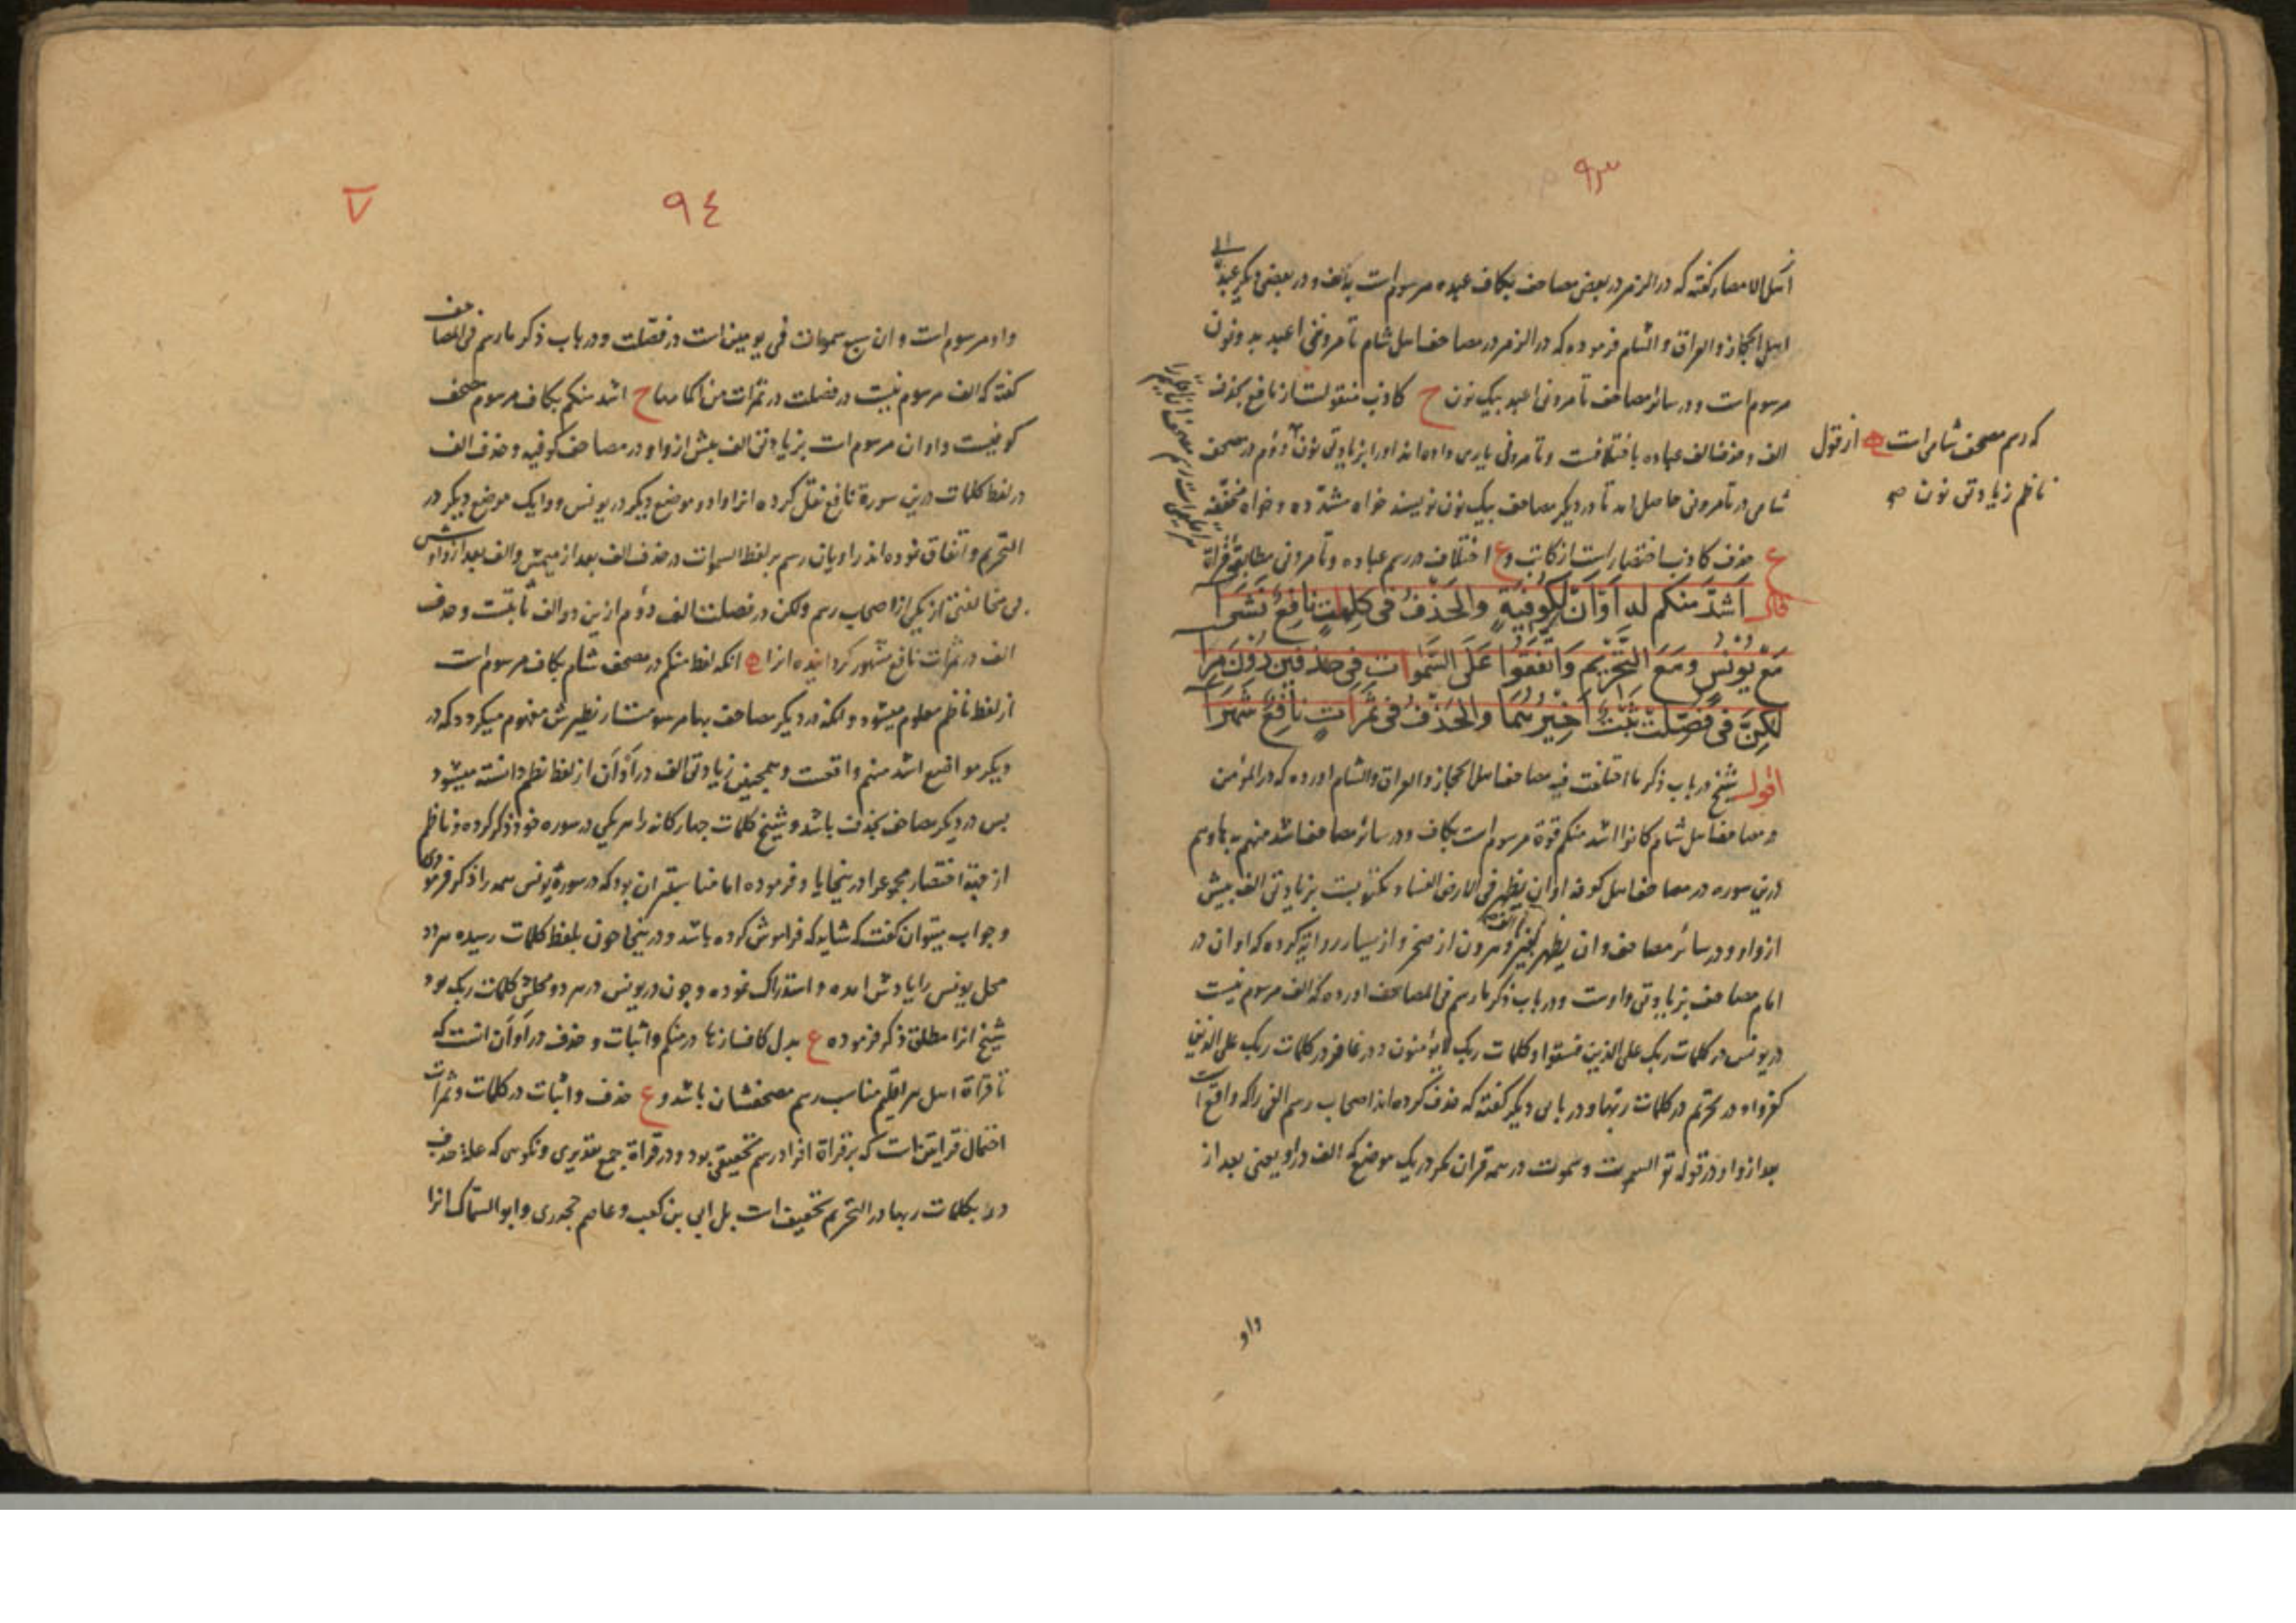 ٩٣
اهل الامصار گفته که در الزمر در بعض مصاحف بکاف عبده مرسوم است بی الف و در بعضی دیگر عباده
اهل الحجاز والعراق والشام فرموده که در الزمر در مصاحف اهل شام تأمروننی اعبد به دو نون
مرسوم است و در سائر مصاحف تأمرونی اعبد بیک نون ح کاذب منقولست از نافع بحذف
الف و حذف الف عباده باختلافست و تأمرونی یاری داده اند او را بزیادتی نون و دوم در مصحف
شامی در تأمرونی حاصل امد تا در دیگر مصاحف بیک نون نویسند خواه مشدده و خواه مخففه
ع حذف کاذب اختصار است از کاتب و ع اختلاف در رسم عباده و تأمرونی مطابقة قراءة
قال اَشَدَّ مِنكُم لَه اَوْ اَنْ لِكُوفِيَةٍ وَالحَذْفُ فى كَلِمٰتٍ نَافِعٌ نَشَرَا
مَعْ يُونُسٍ وَمَعَ التَّحْرِيمِ وَاتَّفَقُوا عَلَى السَّمٰوَاتِ فِى حَذْفَيْنِ دُونَ مِرَا
لٰكِنَّ فى فُصِّلَتْ ثَبْتٌ اَخِيْرُهُمَا وَالحَذْفُ فى ثَمَرَاتٍ نَافِعٌ شَهَرَا
اقول شیخ در باب ذکر ما اختلفت فیه مصاحف اهل الحجاز والعراق والشام اورده که در المؤمن
در مصاحف اهل شام کانوا اشد منکم قوة مرسوم است بکاف و در سائر مصاحف اشد منهم به ها و هم
درین سوره در مصاحف اهل کوفه او ان یظهر فی الارض الفساد مکتوبست بزیادتی الف پیش
از واو و در سائر مصاحف وان یظهر بغیر الف و هرون از صخر و از یسار روایة کرده که او ان در
امام مصاحف بزیادتی واوست و در باب ذکر ما رسم فی المصاحف اورده که الف مرسوم نیست
در یونس در کلمات ربک علی الذین فسقوا و کلمات ربک لا یؤمنون و در غافر در کلمات ربک علی الذین
کفروا و در تحریم در کلمات ربها و در بابی دیگر گفته که حذف کرده اند اصحاب رسم الفی را که واقع است
بعد از واو در قوله تع السموت و سموت در همه قران مکر در یک موضع که الف در او یعنی بعد از
واو
که رسم مصحف شامی است از قول
ناظم زیادتی نون صح
٩٤
٧
واو مرسوم است و ان سبع سموات فی یومین است در فصلت و در باب ذکر ما رسم فی المصاحف
گفته که الف مرسوم نیست در فصلت در ثمرات من اکمامها ح اشد منکم بکاف مرسوم مصحف
کوفیست و او ان مرسوم است بزیادتی الف پیش از واو در مصاحف کوفیه و حذف الف
در لفظ کلمات درین سورة نافع نقل کرده انرا و دو موضع دیگر در یونس و یک موضع دیگر در
التحریم و اتفاق نموده اند راویان رسم بر لفظ السموات در حذف الف بعد از میمش و الف بعد از واوش
بی مخالفتی از یکی از اصحاب رسم ولکن در فصلت الف دوم ازین دو الف ثابتست و حذف
الف در ثمرات نافع مشهور کرداینده انرا انکه لفظ منکم در مصحف شام بکاف مرسوم است
از لفظ ناظم معلوم میشود و انکه در دیگر مصاحف بها مرسومست از نظیرش مفهوم میکردد که در
دیگر مواضع اشد منهم واقعست و همچنین زیادتی الف در او ان از لفظ نظم دانسته میشود
پس در دیگر مصاحف بحذف باشد و شیخ کلمات چهارکانه را هر یکی در سوره خود ذکر کرده و ناظم
از جهة اختصار مجموع را در ینجا یاد فرموده اما مناسبتر ان بود که در سورة یونس همه را ذکر فرمودی
و جواب میتوان گفت که شاید که فراموش کرده باشد و در ینجا چون بلفظ کلمات رسیده هر دو
محل یونس را یادش امده و استدراک نموده و چون در یونس در هر دو محلش کلمات ربک بود
شیخ انرا مطلق ذکر فرموده ع بدل کاف از ها در منکم و اثبات و حذف در او ان انست که
تا قراءة اهل هر اقلیم مناسب رسم مصحفشان باشد و ع حذف و اثبات در کلمات و ثمرات
احتمال قراءتین است که بر قراءة افراد رسم تحقیقی بود و در قراءة جمع تقدیری و نکویی که علة حذف
در بکلمات ربها در التحریم تخفیف است بل ابی بن کعب و عاصم جحدری و ابو السماک انرا